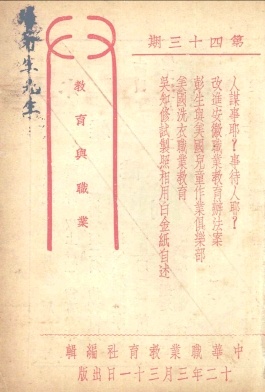 第四十三期
人謀事耶？事待人耶？
改進安徽職業教育辦法案
彭生與美國兒童作業俱樂部
美國洗衣職業教育
吳知修試製照相用白金紙自述
教育與職業
中華職業教育社編輯
十二年三月三十一日出版